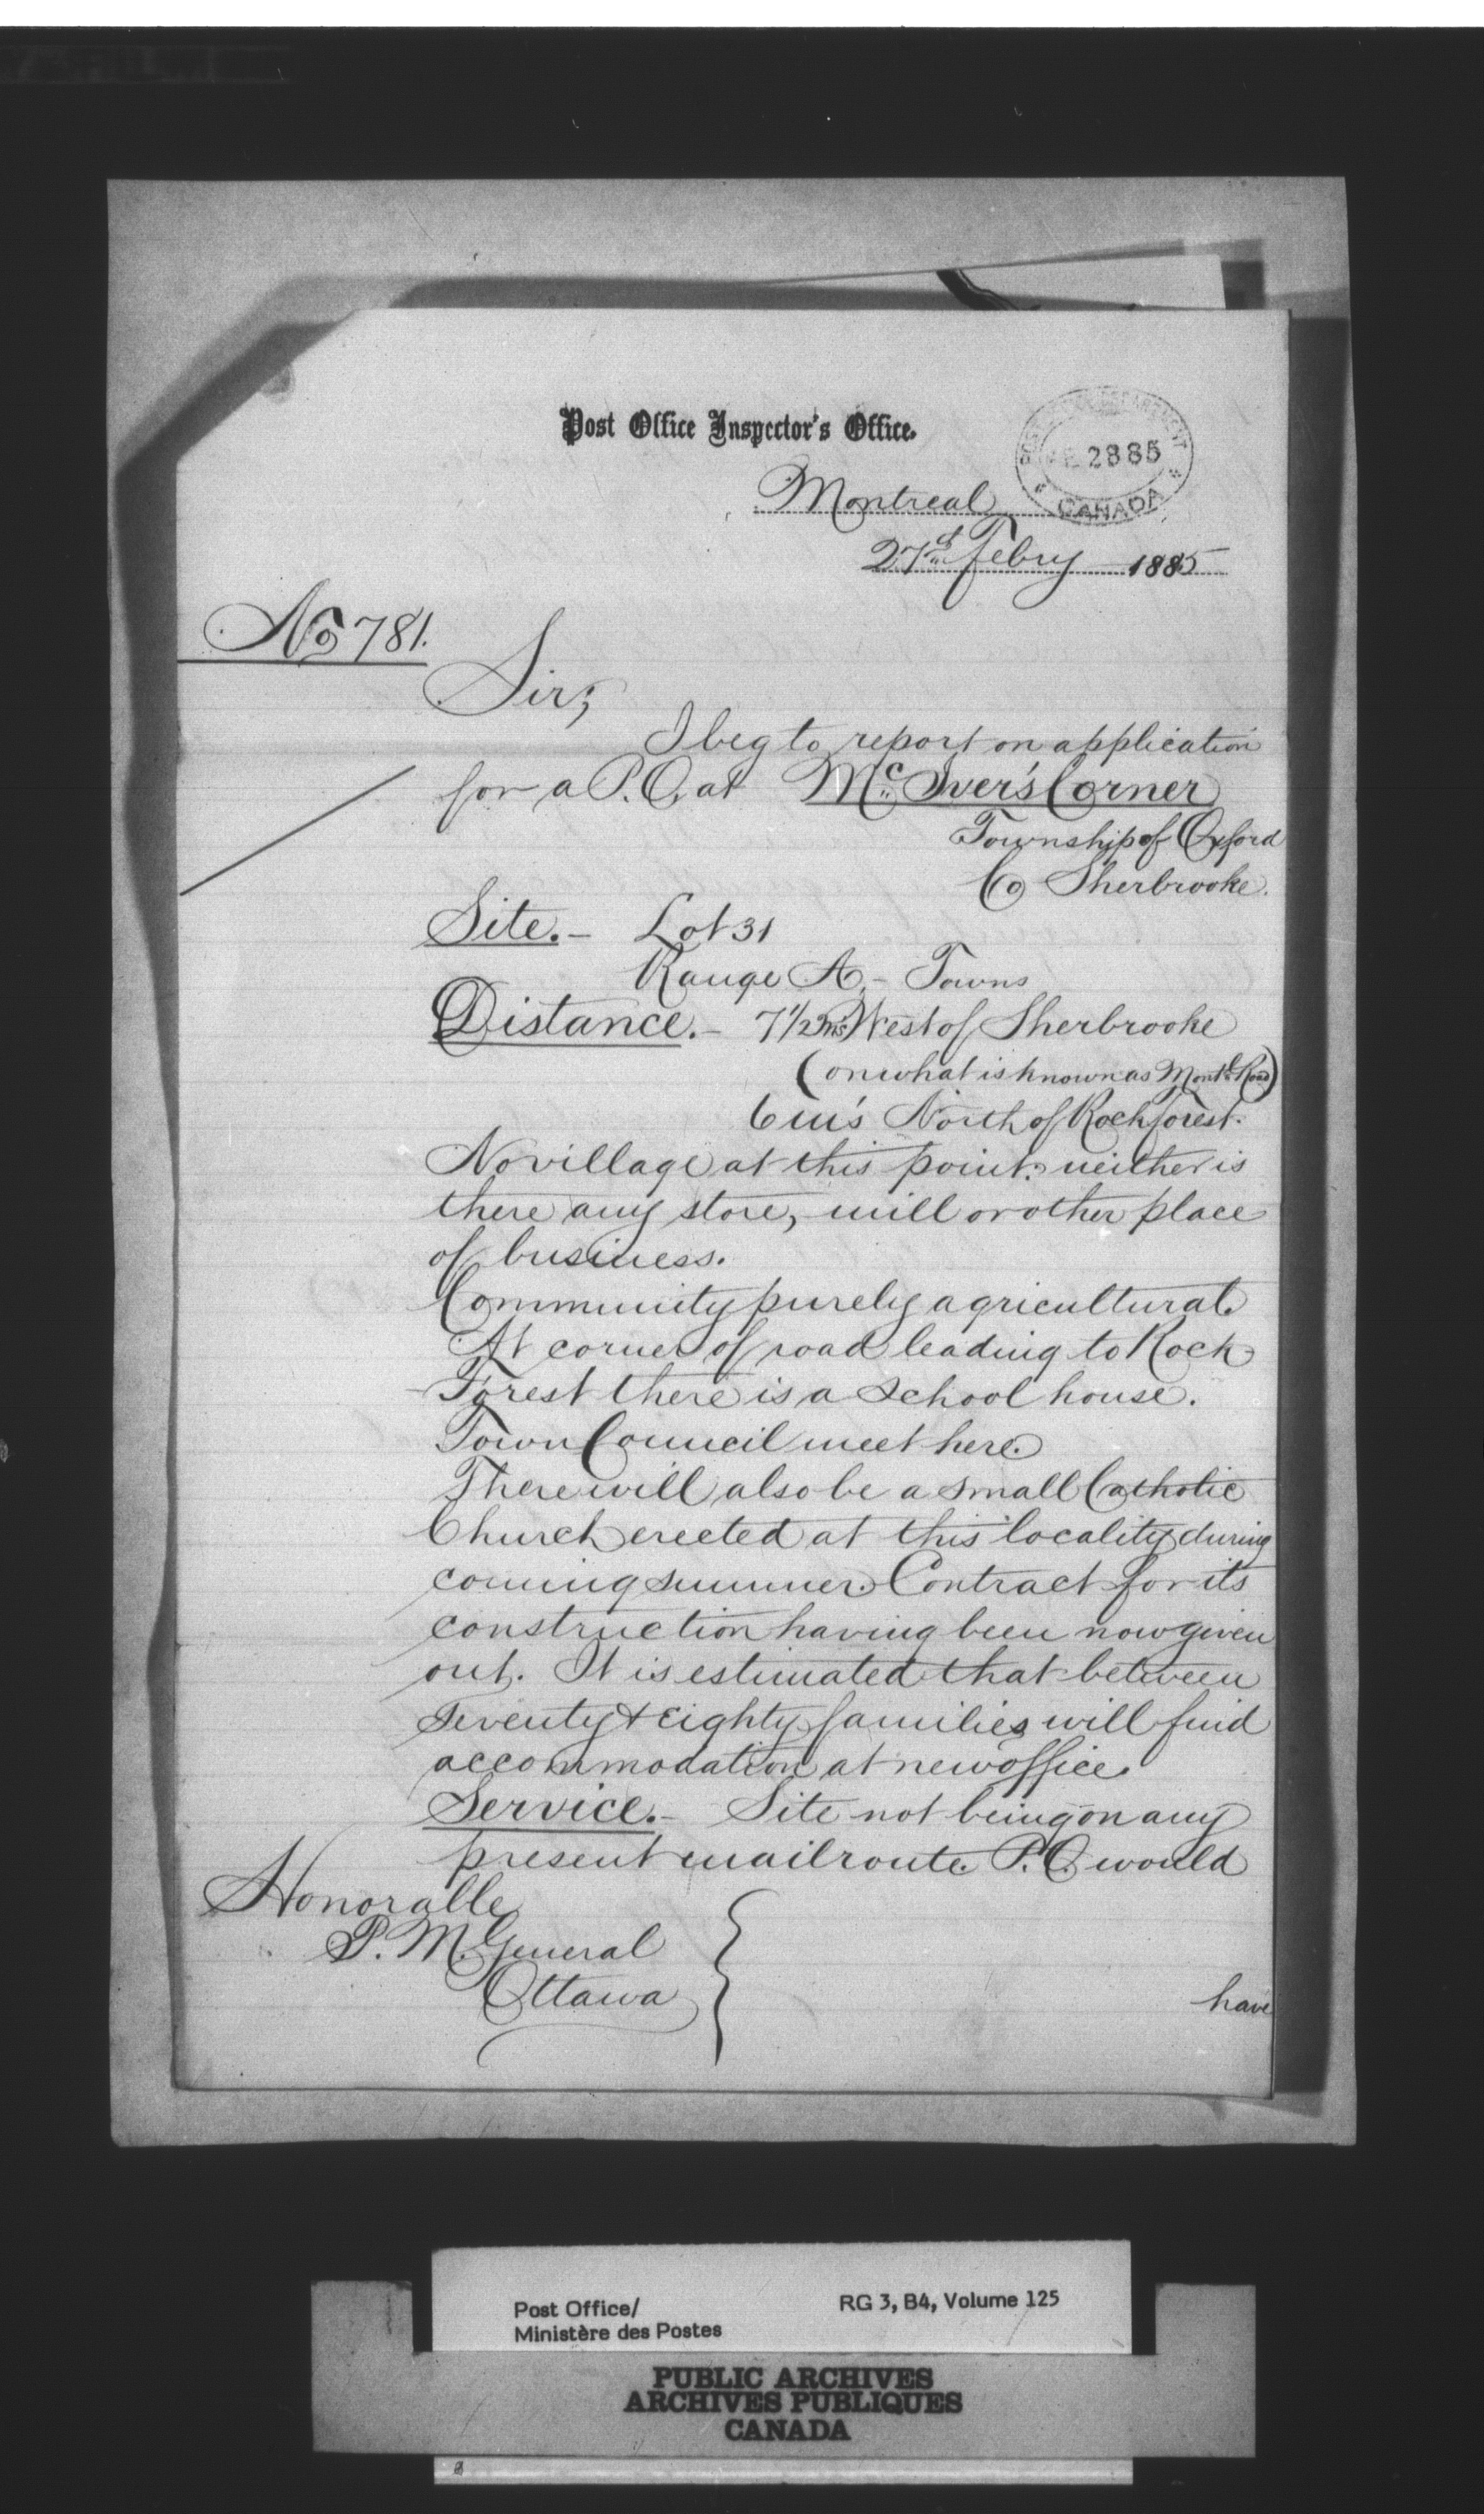 Post Office Inspector's Office.
POST OFFICE DEPARTMENT
FE 28 85
CANADA
Montreal
27th Febry 1885
No 781.
Sir;
I beg to report on application
for a P.O. at McIver's Corner
Township of Oxford
Co Sherbrooke.
Site.- Lot 31
Range A - Towns
Distance.- 7 1/2 ms West of Sherbrooke
(on what is known as Montl Road)
6 m's North of Rock Forest.
No village at this point; neither is
there any store, mill or other place
of business.
Community purely agricultural.
At corner of road leading to Rock
Forest there is a school house.
Town Council meet here.
There will also be a small Catholic
Church erected at this locality during
coming summer. Contract for its
construction having been now given
out. It is estimated that between
seventy & eighty families will find
accommodation at new office.
Service.- Site not being on any
present mail route. P.O. would
Honorable
P. M. General
Ottawa
have
Post Office/
Ministère des Postes
RG 3, B4, Volume 125
PUBLIC ARCHIVES
ARCHIVES PUBLIQUES
CANADA